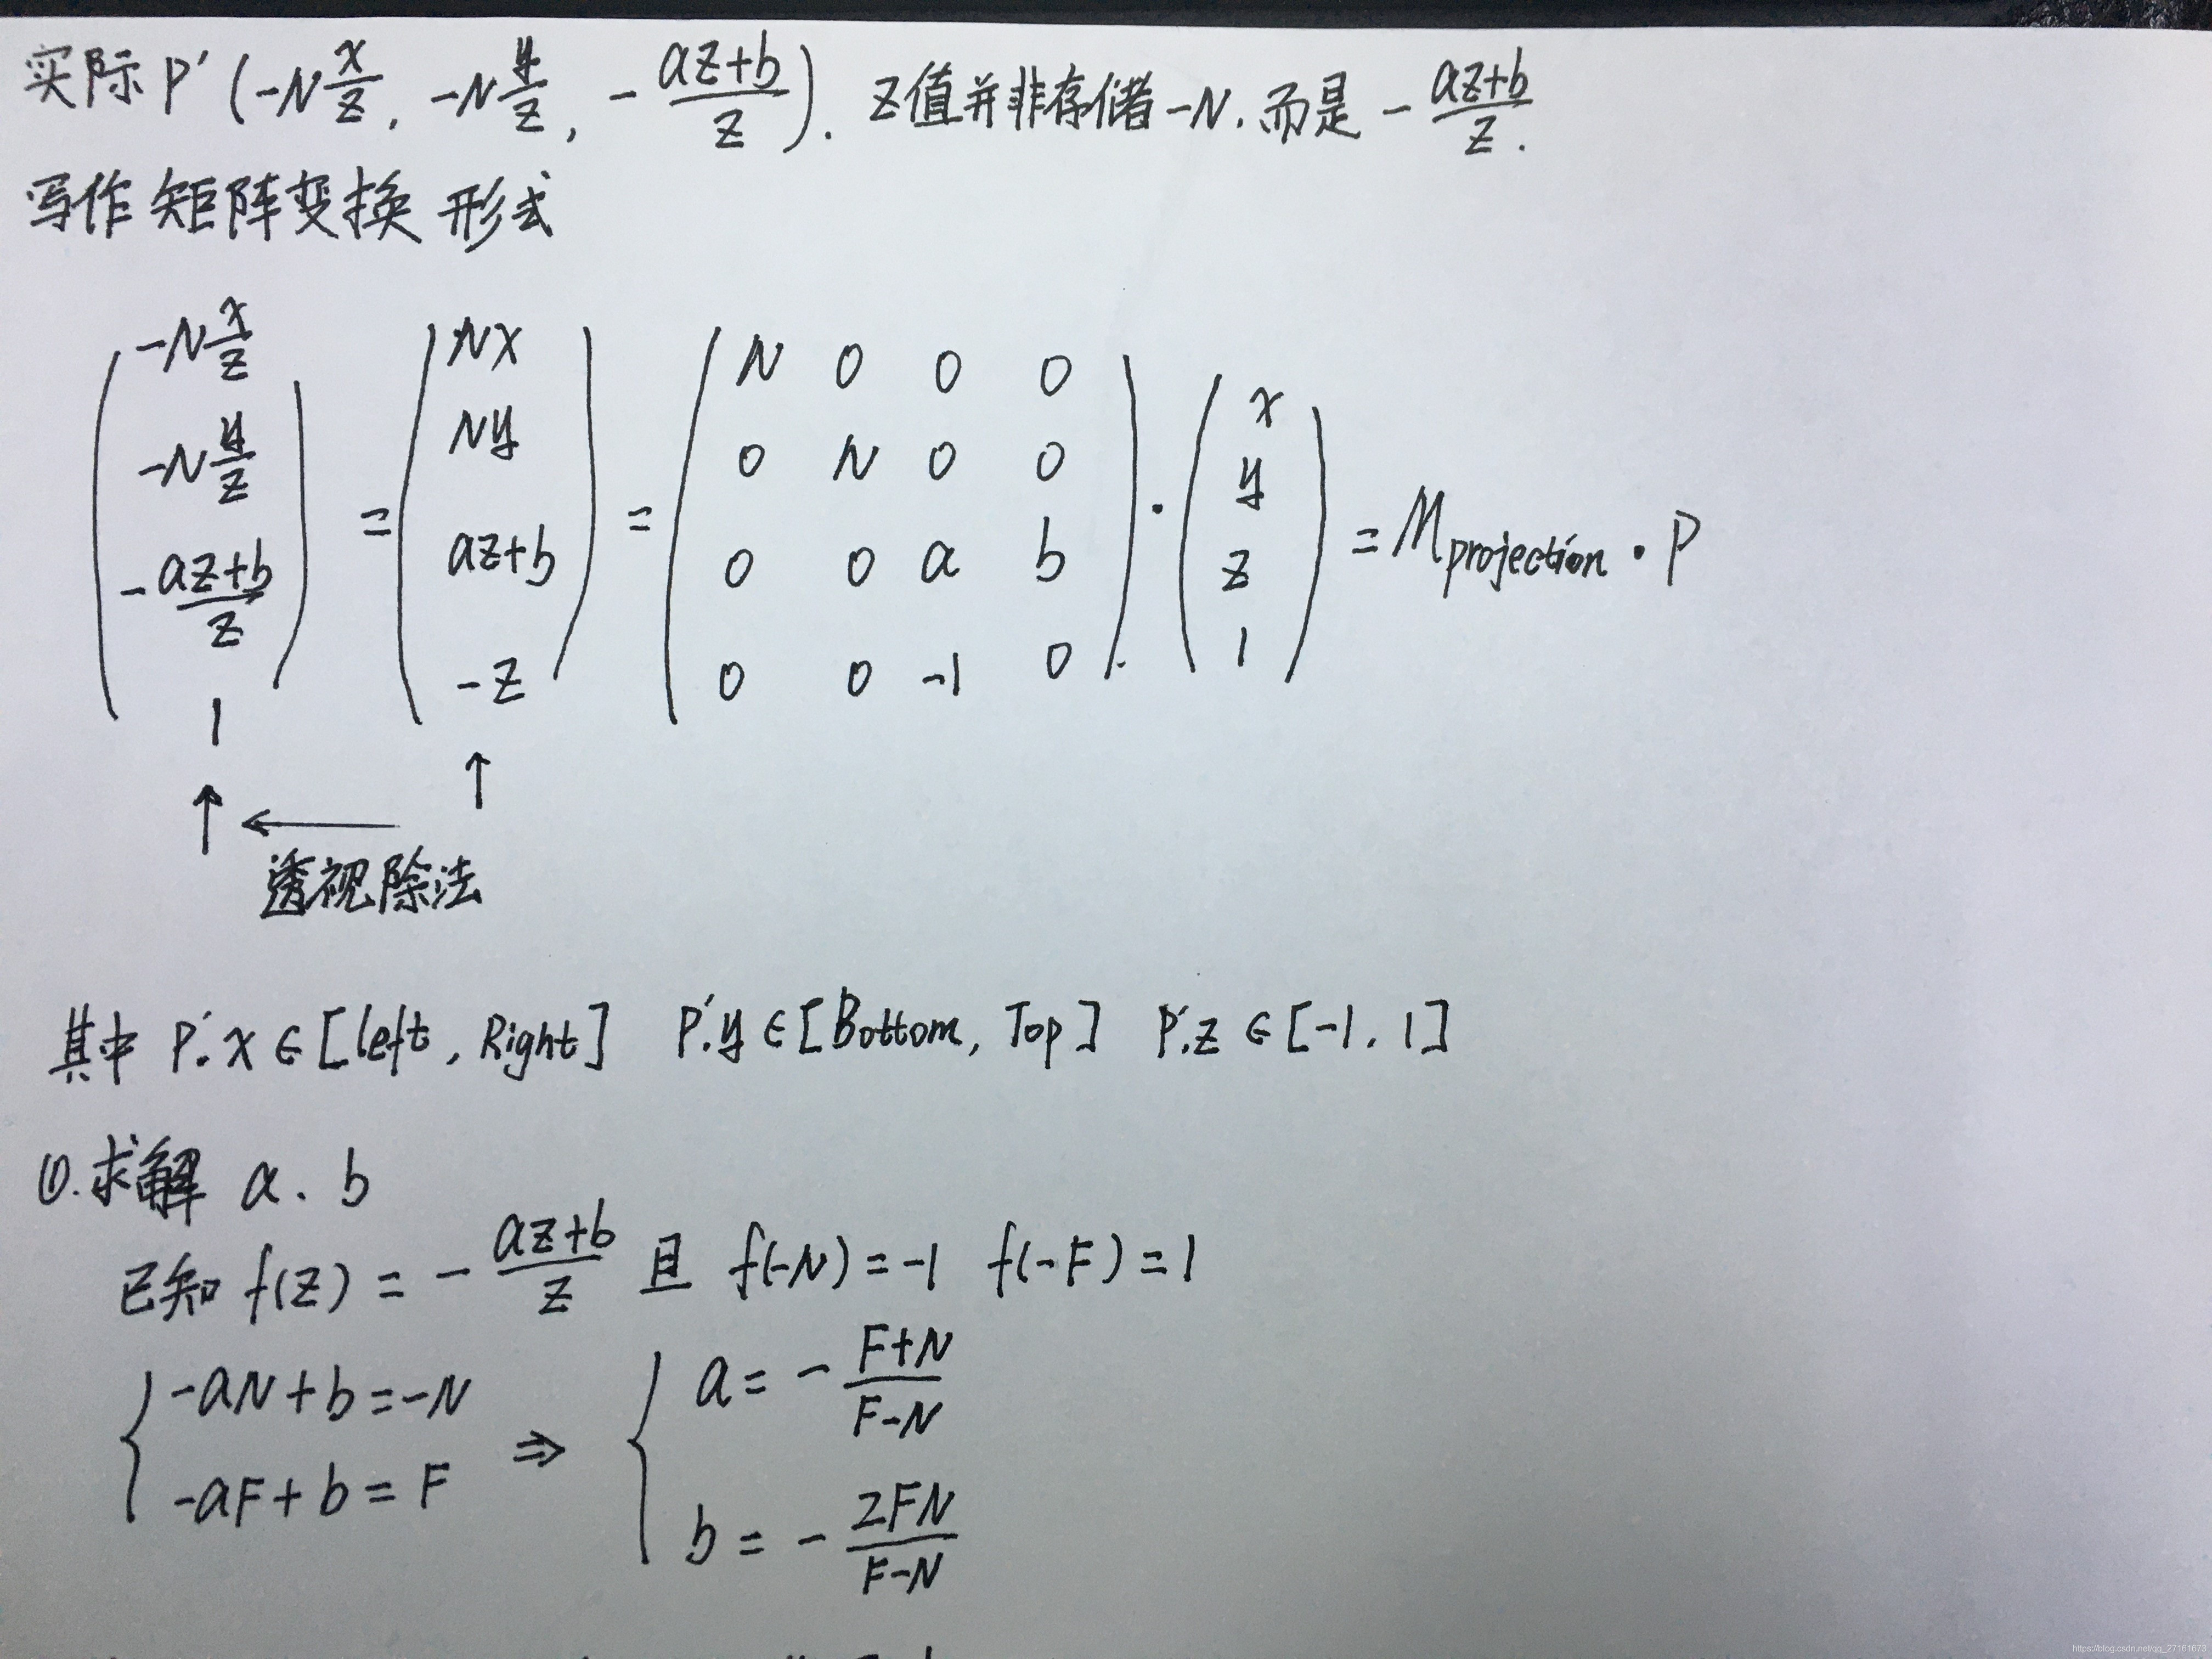 实际 P′ (-N x/z, -N y/z, - (az+b)/z). z值并非存储-N.而是 - (az+b)/z.
写作矩阵变换形式
( -N x/z ; -N y/z ; - (az+b)/z ; 1 ) = ( Nx ; Ny ; az+b ; -z ) = ( N 0 0 0 ; 0 N 0 0 ; 0 0 a b ; 0 0 -1 0 ) · ( x ; y ; z ; 1 ) = Mprojection · P
↑ ← ↑
透视除法
其中 P′.x ∈ [left, Right] P′.y ∈ [Bottom, Top] P′.z ∈ [-1. 1]
①.求解 a. b
已知 f(z) = - (az+b)/z 且 f(-N) = -1 f(-F) = 1
{ -aN + b = -N ⇒ { a = - (F+N)/(F-N)
-aF + b = F b = - 2FN/(F-N)
https://blog.csdn.net/qq_27161673